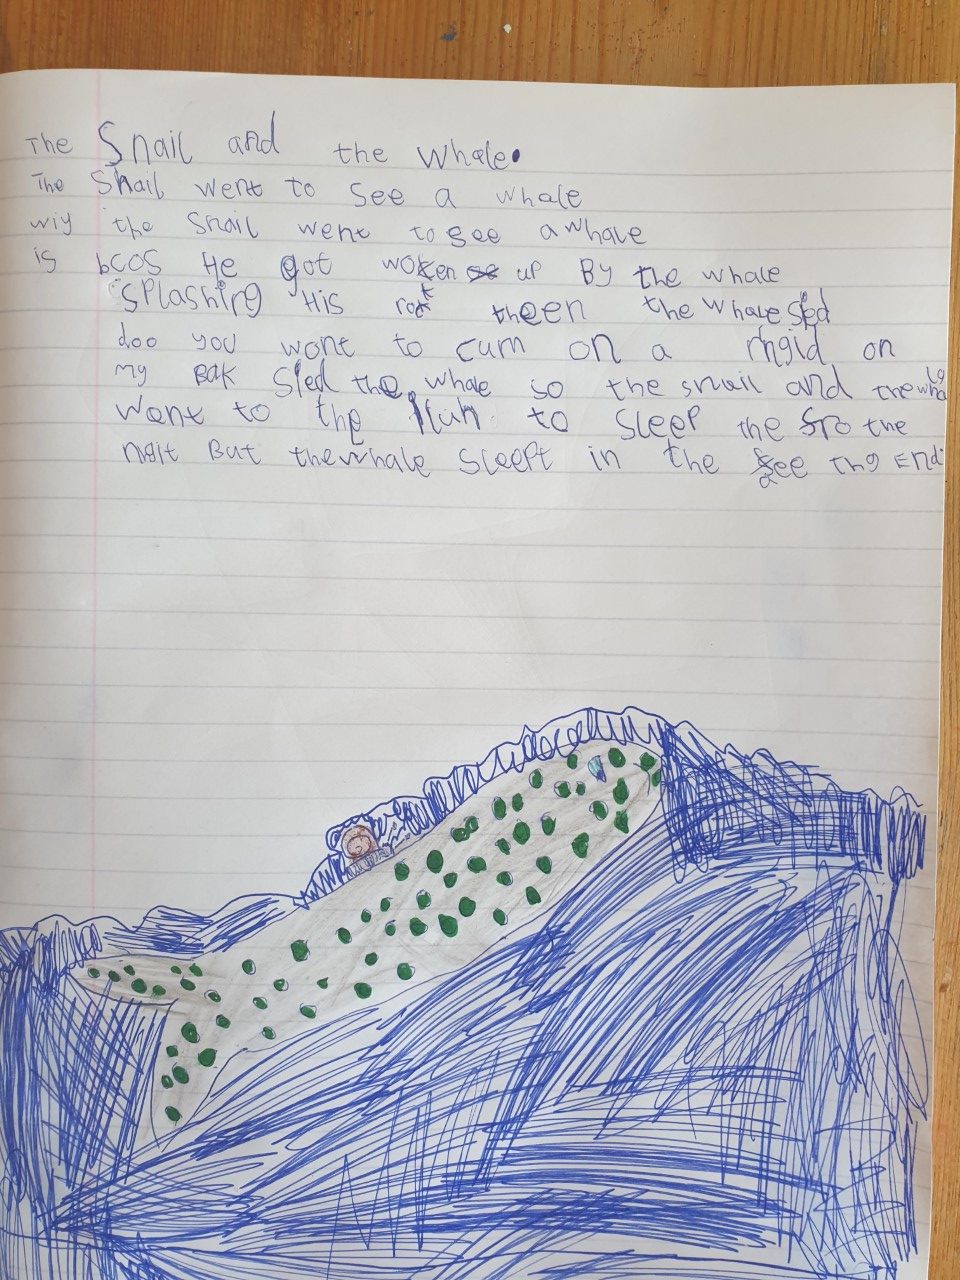 The Snail and the whale.
The Snail went to see a whale
wiy the snail went to see a whale
is bcos He got woken up By the whale
splashing His rok theen the whale sed
doo you wont to cum on a rhgid on
my Bak Sled the whale so the snail and the
Went to the to sleep the fro the
ngit But the whale sleept in the see the End